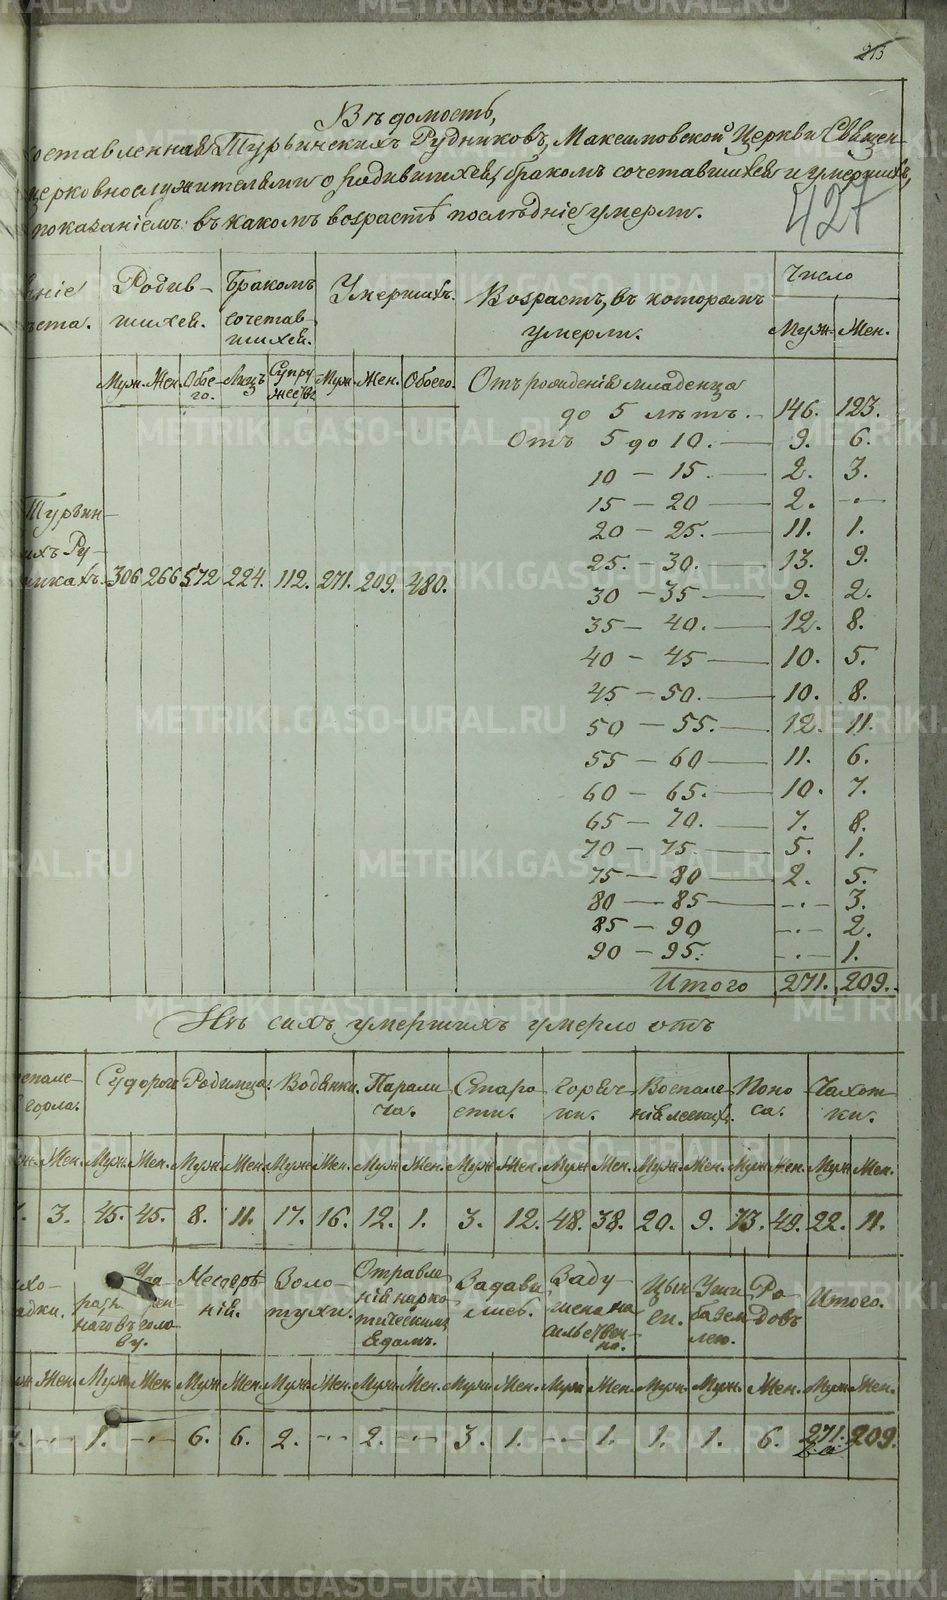 213
Вѣдомость,
составленная Турьинскихъ Рудниковъ, Максимовской Церкви Священ-
церковнослужителями о родившихся, бракомъ сочетавшихся и умершихъ,
показаніемъ въ какомъ возрастѣ послѣдніе умерли.
427
Родив-
шихся.
Бракомъ
сочетав-
шихся.
Умершихъ.
Возрастъ, въ которомъ
умерли.
Число
Муж. Жен.
Муж. Жен. Обое-
го. Лицъ Супру
жествъ Муж. Жен. Обоего.
Отъ рожденія младенца
до 5 лѣтъ. 146. 123.
Отъ 5 до 10. 9. 6.
10 — 15. 2. 3.
15 — 20 2. -·-
20 — 25. 11. 1.
25. — 30. 13. 9.
30 — 35 9. 2.
35 — 40. 12. 8.
40 — 45 10. 5.
45 — 50. 10. 8.
50 — 55. 12. 11.
55 — 60 11. 6.
60 — 65. 10. 7.
65 — 70. 7. 8.
70 — 75. 5. 1.
75 — 80 2. 5.
80 — 85 -·- 3.
85 — 90 -·- 2.
90 — 95. -·- 1.
Итого 271. 209.
Турьин-
ихъ Ру-
никахъ. 306 266 572 224. 112. 271. 209. 480.
Изъ сихъ умершихъ умерло отъ
спале-
горла. Судорогъ Родимца. Водянки. Парали
ча. Старо
сти. Горяч
ки. Воспале-
нія легкихъ. Поно
са. Чахот-
ки.
Жен. Муж. Жен. Муж. Жен. Муж. Жен. Муж. Жен. Муж. Жен. Муж. Жен. Муж. Жен. Муж. Жен. Муж. Жен.
3. 45. 45. 8. 11. 17. 16. 12. 1. 3. 12. 48. 38. 20. 9. 73. 49. 22. 11.
ихо-
адки.
наго въ голо
ву.
Золо-
тухи.
Отравле
нія нарко
тическимъ
ядомъ.
Задави
лись.
Заду-
шена на
сильствен-
но.
Цын
ги.
Ро-
довъ
Итого.
Жен. Муж. Жен. Муж. Жен. Муж. Жен. Муж. Жен. Муж. Жен. Муж. Жен. Муж. Муж. Жен. Муж. Жен.
-·- 1. -·- 6. 6. 2. -·- 2. -·- 3. 1. -·- 1. 1. 1. 6. 271. 209.
METRIKI.GASO-URAL.RU